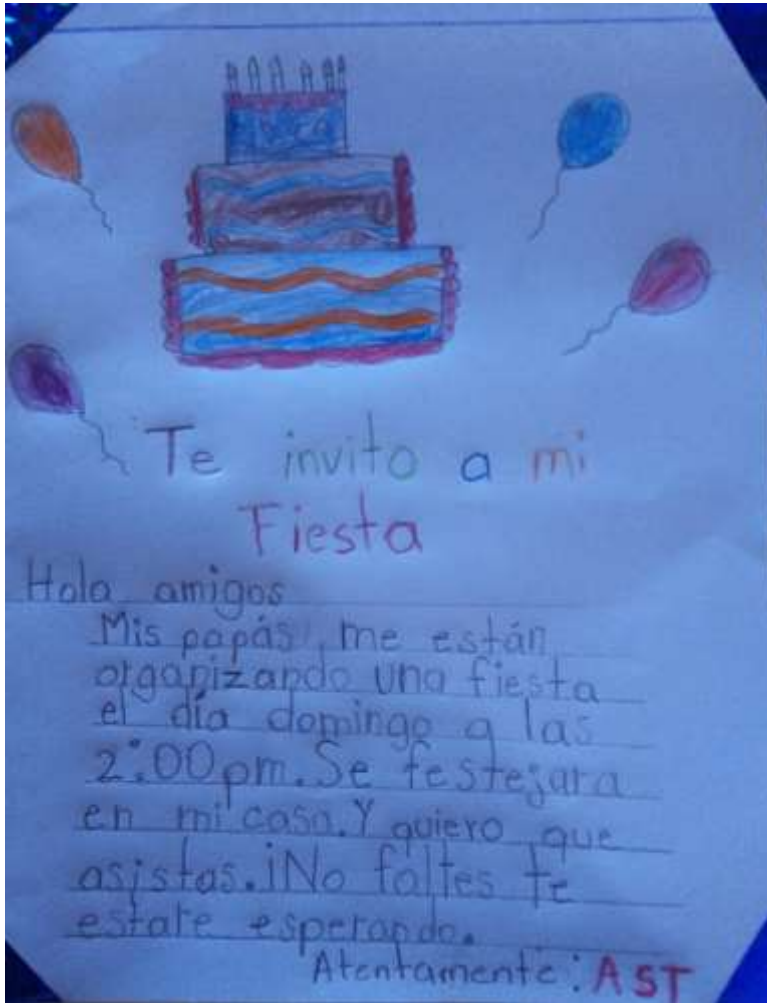 Te invito a mi
Fiesta
Hola amigos
Mis papás, me están
organizando una fiesta
el día domingo a las
2:00 pm. Se festejara
en mi casa. Y quiero que
asistas. ¡No faltes te
estare esperando.
Atentamente: AST